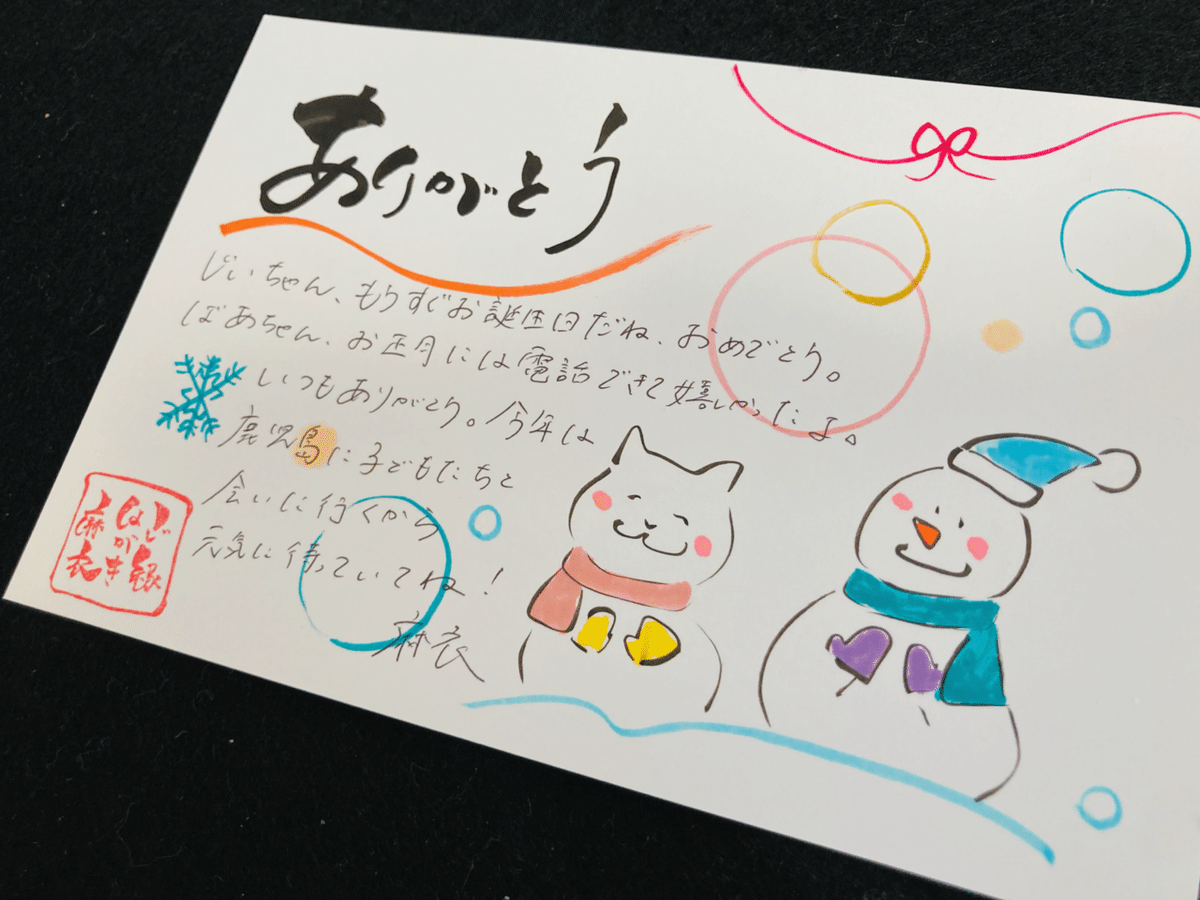 ありがとう
じいちゃん、もうすぐお誕生日だね、おめでとう。
ばあちゃん、お正月には電話できて嬉しかったよ。
いつもありがとう。今年は
鹿児島に子どもたちと
会いに行くから
元気に待っていてね！
麻衣
じ縁
はがき
麻衣